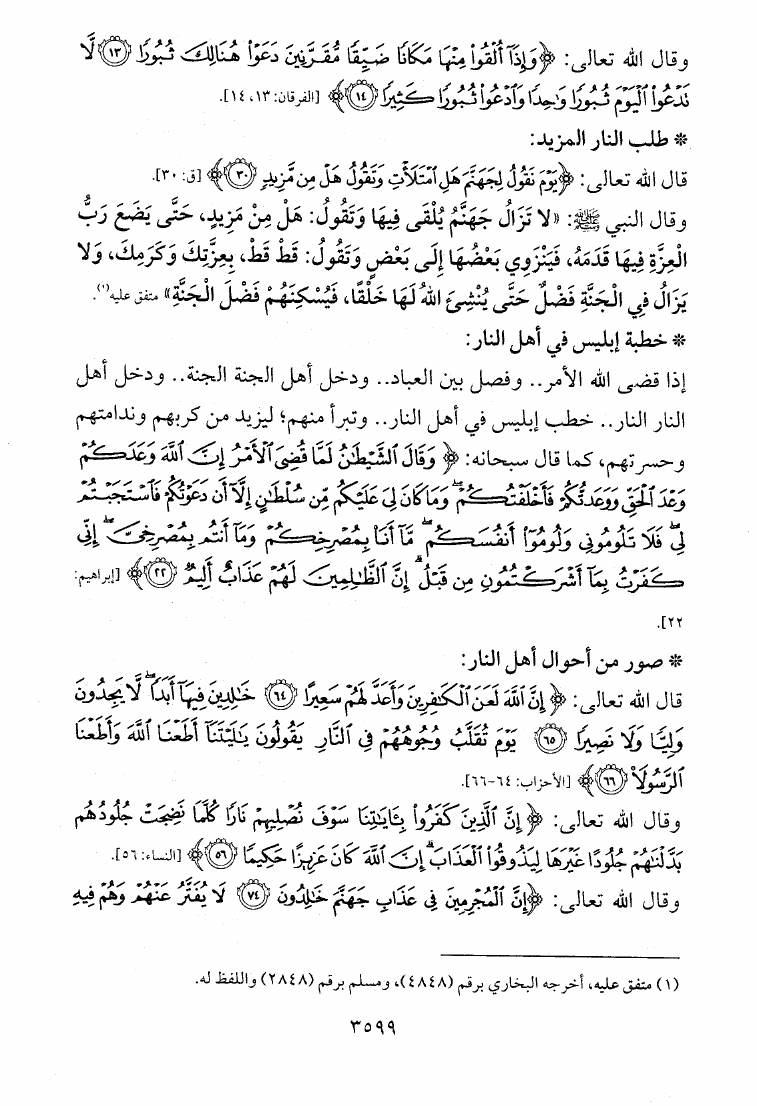 وقال الله تعالى: ﴿وَإِذَآ أُلْقُوا۟ مِنْهَا مَكَانًا ضَيِّقًا مُّقَرَّنِينَ دَعَوْا۟ هُنَالِكَ ثُبُورًا ﴿١٣﴾ لَّا
تَدْعُوا۟ ٱلْيَوْمَ ثُبُورًا وَٰحِدًا وَٱدْعُوا۟ ثُبُورًا كَثِيرًا ﴿١٤﴾﴾ [الفرقان: ١٣، ١٤].
* طلب النار المزيد:
قال الله تعالى: ﴿يَوْمَ نَقُولُ لِجَهَنَّمَ هَلِ ٱمْتَلَأْتِ وَتَقُولُ هَلْ مِن مَّزِيدٍ ﴿٣٠﴾﴾ [ق: ٣٠].
وقال النبي ﷺ: «لا تَزَالُ جَهَنَّمُ يُلْقَى فِيهَا وَتَقُولُ: هَلْ مِنْ مَزِيدٍ، حَتَّى يَضَعَ رَبُّ
الْعِزَّةِ فِيهَا قَدَمَهُ، فَيَنْزَوِي بَعْضُهَا إِلَى بَعْضٍ وَتَقُولُ: قَطْ قَطْ، بِعِزَّتِكَ وَكَرَمِكَ، وَلا
يَزَالُ فِي الْجَنَّةِ فَضْلٌ حَتَّى يُنْشِئَ اللهُ لَهَا خَلْقًا، فَيُسْكِنَهُمْ فَضْلَ الْجَنَّةِ» متفق عليه(١).
* خطبة إبليس في أهل النار:
إذا قضى الله الأمر.. وفصل بين العباد.. ودخل أهل الجنة الجنة.. ودخل أهل
النار النار.. خطب إبليس في أهل النار.. وتبرأ منهم؛ ليزيد من كربهم وندامتهم
وحسرتهم، كما قال سبحانه: ﴿وَقَالَ ٱلشَّيْطَٰنُ لَمَّا قُضِىَ ٱلْأَمْرُ إِنَّ ٱللَّهَ وَعَدَكُمْ
وَعْدَ ٱلْحَقِّ وَوَعَدتُّكُمْ فَأَخْلَفْتُكُمْ ۖ وَمَا كَانَ لِىَ عَلَيْكُم مِّن سُلْطَٰنٍ إِلَّآ أَن دَعَوْتُكُمْ فَٱسْتَجَبْتُمْ
لِى ۖ فَلَا تَلُومُونِى وَلُومُوٓا۟ أَنفُسَكُم ۖ مَّآ أَنَا۠ بِمُصْرِخِكُمْ وَمَآ أَنتُم بِمُصْرِخِىَّ ۖ إِنِّى
كَفَرْتُ بِمَآ أَشْرَكْتُمُونِ مِن قَبْلُ ۗ إِنَّ ٱلظَّٰلِمِينَ لَهُمْ عَذَابٌ أَلِيمٌ ﴿٢٢﴾﴾ [إبراهيم:
٢٢].
* صور من أحوال أهل النار:
قال الله تعالى: ﴿إِنَّ ٱللَّهَ لَعَنَ ٱلْكَٰفِرِينَ وَأَعَدَّ لَهُمْ سَعِيرًا ﴿٦٤﴾ خَٰلِدِينَ فِيهَآ أَبَدًا ۖ لَّا يَجِدُونَ
وَلِيًّا وَلَا نَصِيرًا ﴿٦٥﴾ يَوْمَ تُقَلَّبُ وُجُوهُهُمْ فِى ٱلنَّارِ يَقُولُونَ يَٰلَيْتَنَآ أَطَعْنَا ٱللَّهَ وَأَطَعْنَا
ٱلرَّسُولَا۠ ﴿٦٦﴾﴾ [الأحزاب: ٦٤-٦٦].
وقال الله تعالى: ﴿إِنَّ ٱلَّذِينَ كَفَرُوا۟ بِـَٔايَٰتِنَا سَوْفَ نُصْلِيهِمْ نَارًا كُلَّمَا نَضِجَتْ جُلُودُهُم
بَدَّلْنَٰهُمْ جُلُودًا غَيْرَهَا لِيَذُوقُوا۟ ٱلْعَذَابَ ۗ إِنَّ ٱللَّهَ كَانَ عَزِيزًا حَكِيمًا ﴿٥٦﴾﴾ [النساء: ٥٦].
وقال الله تعالى: ﴿إِنَّ ٱلْمُجْرِمِينَ فِى عَذَابِ جَهَنَّمَ خَٰلِدُونَ ﴿٧٤﴾ لَا يُفَتَّرُ عَنْهُمْ وَهُمْ فِيهِ
(١) متفق عليه، أخرجه البخاري برقم (٤٨٤٨)، ومسلم برقم (٢٨٤٨) واللفظ له.
٣٥٩٩